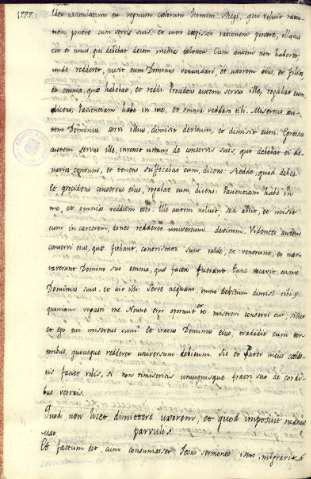 Ideo assimilatum est regnum cœlorum homini Regi, qui voluit ratio-
nem ponere cum servis suis, et cum cœpisset rationem ponere, oblatus
est ei unus, qui debebat decem millia talenta. Cum autem non haberet
unde redderet, jussit eum Dominus venundari, et uxorem eius, et filios
et omnia, quæ habebat, et reddi. Procidens autem servus ille, rogabat eum
dicens: Patientiam habe in me, et omnia reddam tibi. Misertus au-
tem Dominus servi illius, debitum, et dimisit eum. Egressus
autem servus ille invenit unum de conservis suis, qui debebat ei de-
narios centum, et tenens suffocabat eum, dicens: Redde, quod debes.
Et procidens conservus eius, rogabat eum dicens: Patientiam habe in
me, et omnia reddam tibi. Ille autem noluit, sed abiit, et misit
eum in carcerem, donec redderet debitum. Videntes autem
conservi eius, quæ fiebant, contristati sunt valde, et venerunt, et nar-
raverunt Domino suo omnia, quæ facta fuerant. Tunc vocavit eum
Dominus suus, et ait illi: Serve nequam, omne debitum dimisi tibi,
quoniam rogasti me. Nonne ergo oportuit et te misereri conservi tui, sicut
et ego tui misertus sum? Et iratus Dominus eius, tradidit eum tor-
toribus, quousque redderet universum debitum. Sic et Pater meus cœles-
tis faciet vobis, si non remiseritis unusquisque fratri suo de cordi-
bus vestris.
Quod non licet dimittere uxorem, et quod imposuit manus
parvulis.
Et factum est cum consumasset Jesus sermones istos migravit a